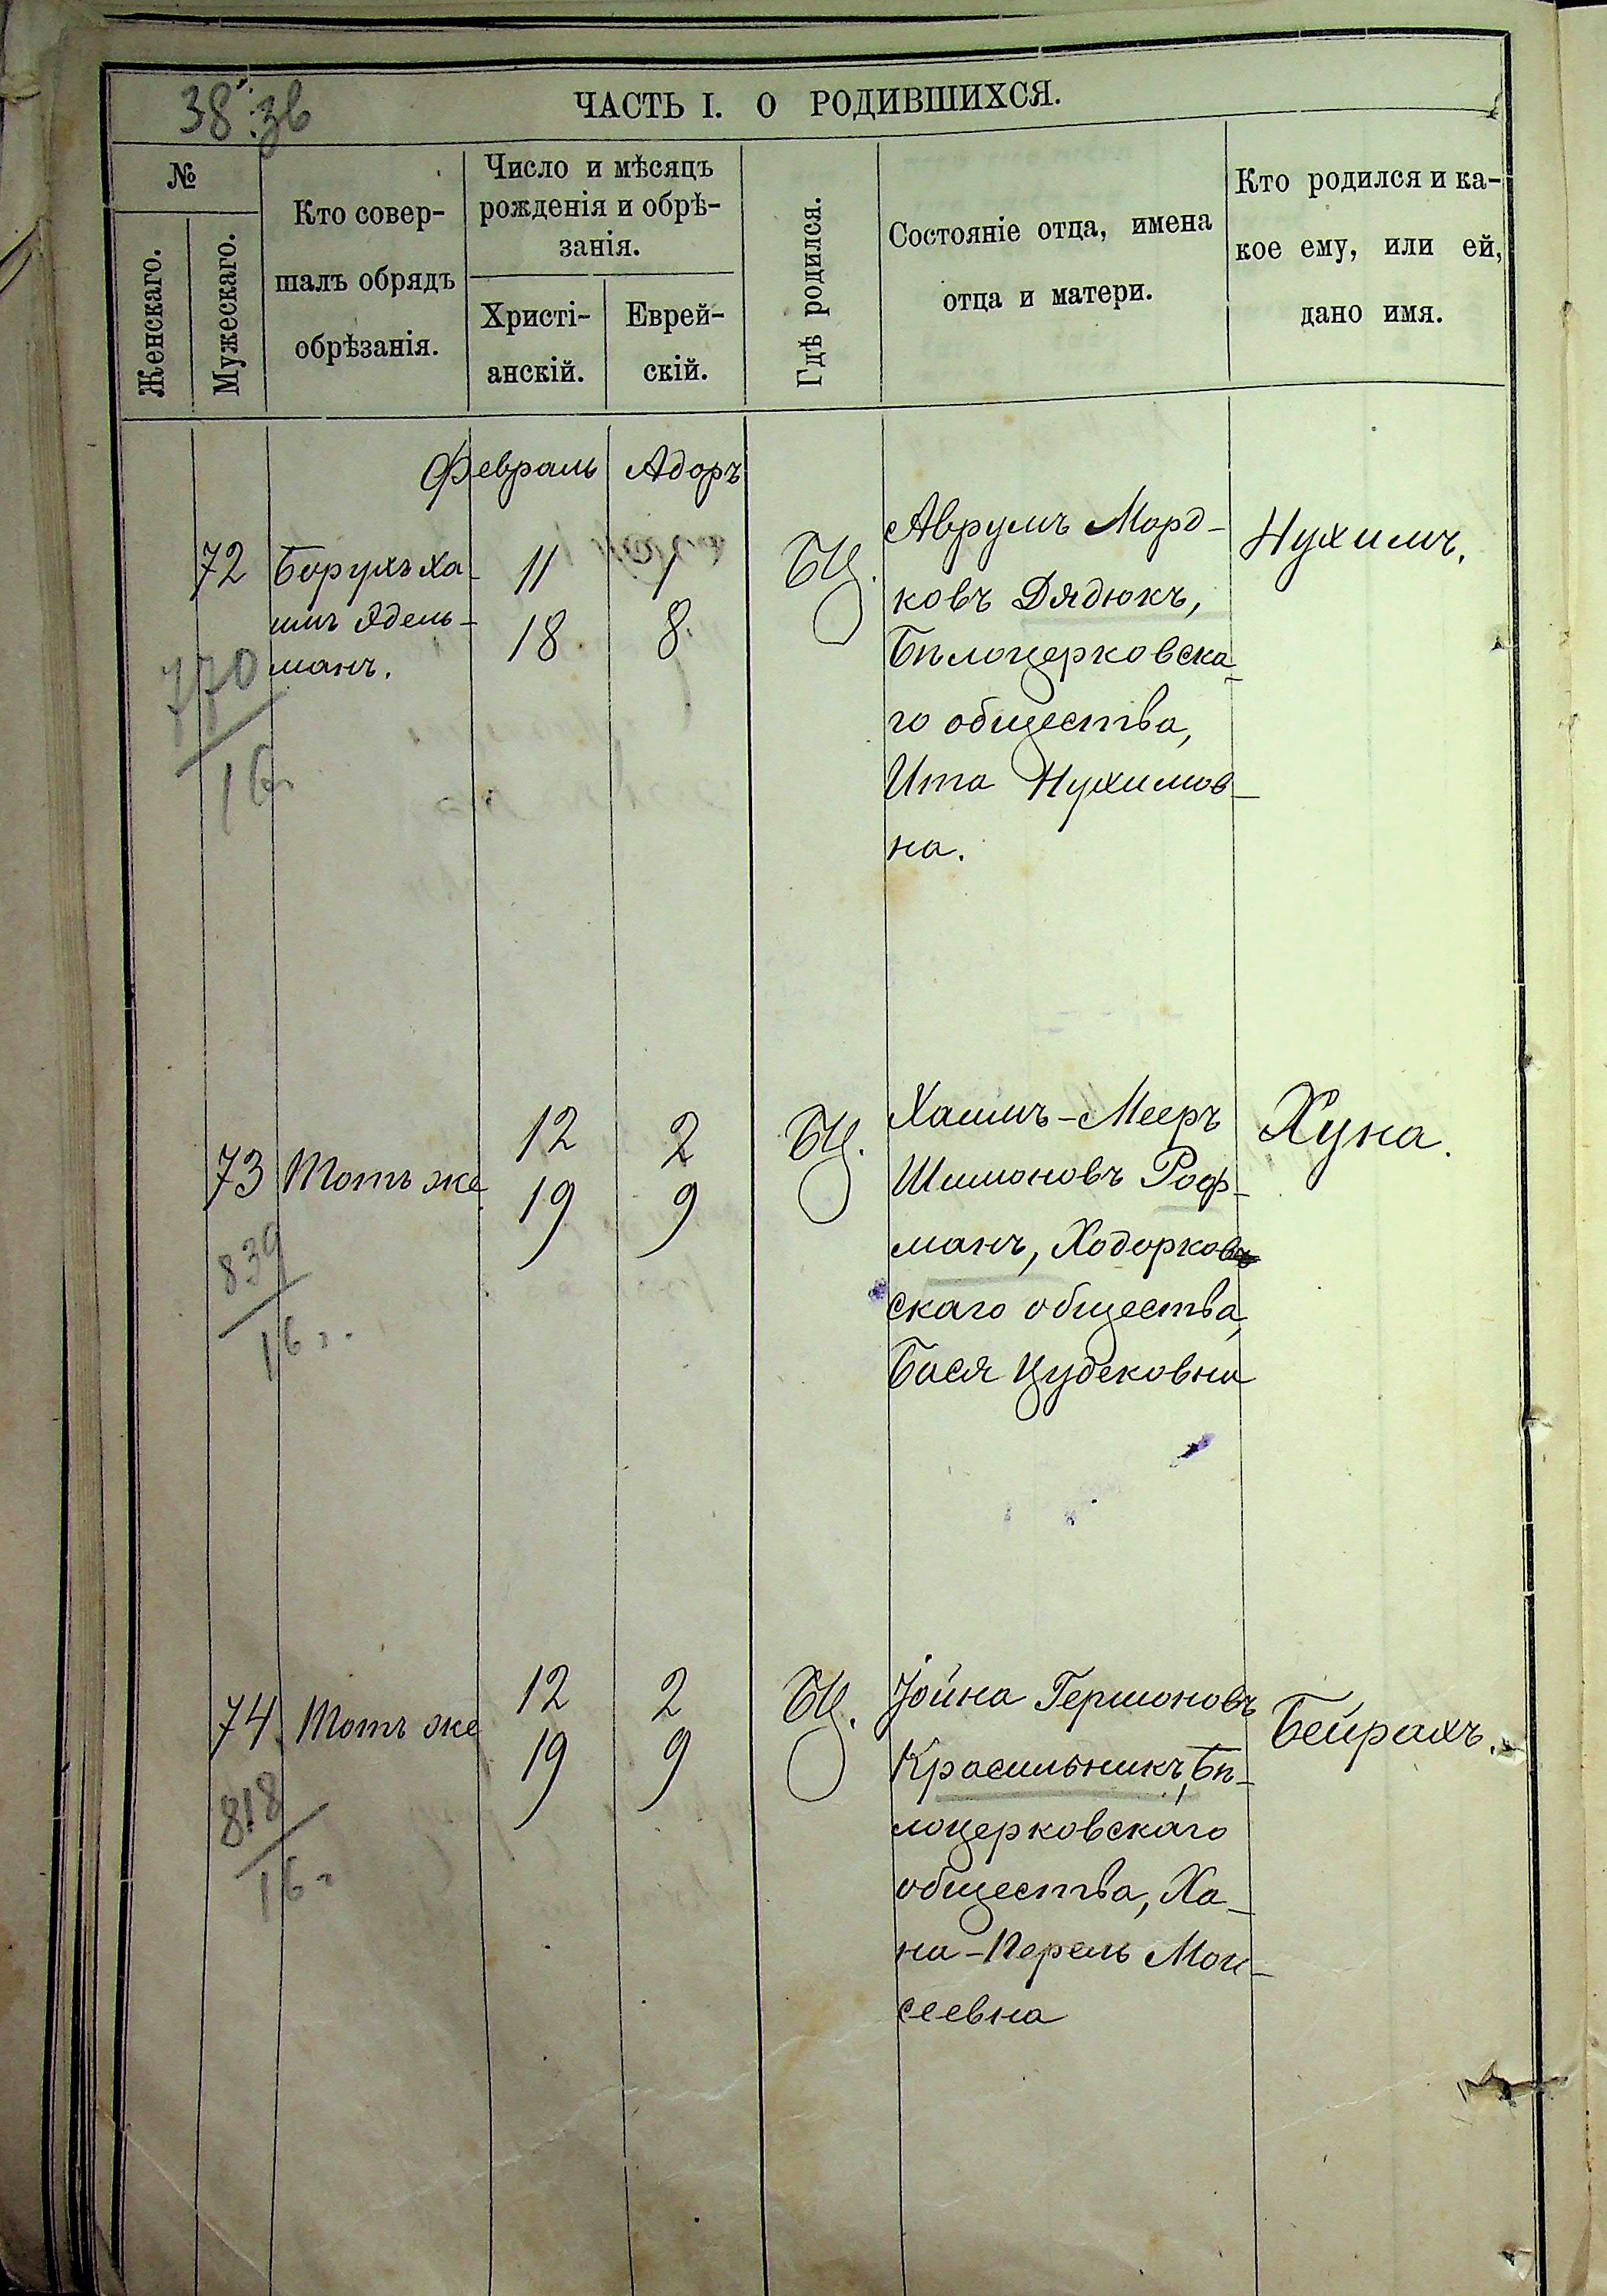 38 зв
ЧАСТЬ I. О РОДИВШИХСЯ.
№
Женскаго.
Мужескаго.
Кто совер-
шалъ обрядъ
обрѣзанія.
Число и мѣсяцъ
рожденія и обрѣ-
занія.
Христі-
анскій.
Еврей-
скій.
Гдѣ родился.
Состояніе отца, имена
отца и матери.
Кто родился и ка-
кое ему, или ей,
дано имя.
Февраль Адоръ
72
Борухъ Ха-
имъ Эдель-
манъ.
11 1
18. 8.
БЦ.
Аврумъ Морд-
ковъ Дядюкъ,
Бѣлоцерковска-
го общества,
Ита Нухимов-
на.
Нухимъ.
770
16г.
73 Тотъ же
12 2
19 9
БЦ.
Хаимъ-Мееръ
Шимоновъ Роф-
манъ, Ходорков
скаго общества,
Бася Цудековна
Хуна.
839
16г.
74 Тотъ же
12 2
19 9
БЦ.
Іойна Гершоновъ
Красильникъ, Бѣ-
лоцерковскаго
общества, Ха-
на-Перель Мои-
сеевна
Бейрахъ.
818
16г.